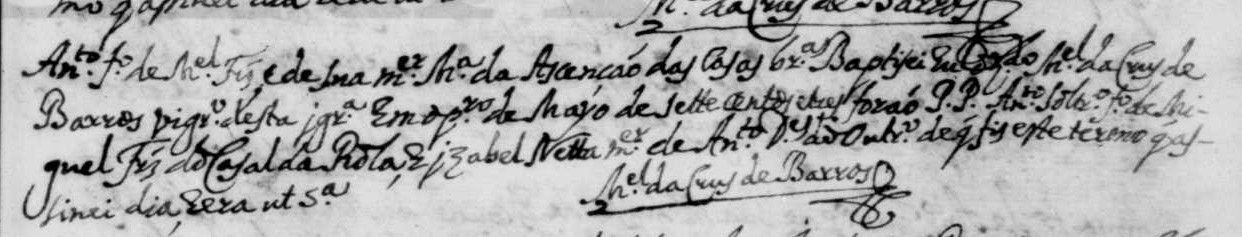 Mel. da Cruz de Barros
Anto. fo. de Mel. Frz e de sua mer. Ma. da Ascenção das Casas bras. Baptizei Eu o pdo. Mel. da Cruz de
Barros vigro. desta jgra. Em o pro. de Mayo de sette centos e tres forão P.P. Anto. soltro. fo. de Mi-
guel Frz do Casal da Rola, E jzabel Netta mer. de Anto. do Outro. de q̃ fis este termo q̃ as-
sinei dia, E era ut sa.
Mel. da Cruz de Barros